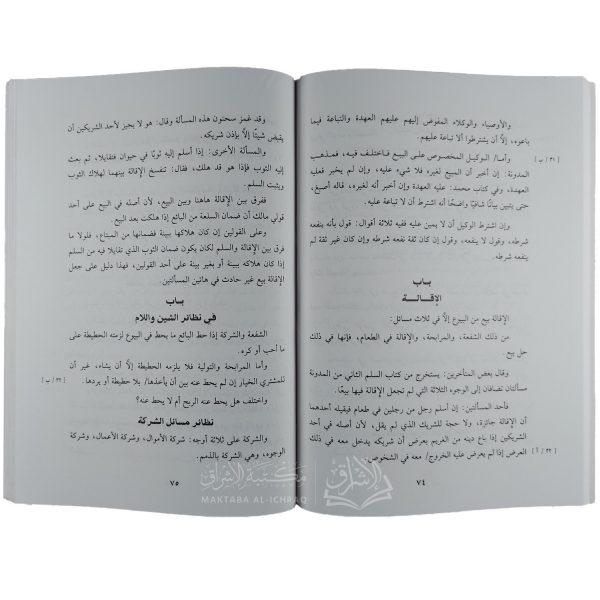 والأوصياء والوكلاء المفوض إليهم عليهم العهدة والتباعة فيما
باعوه، إلَّا أن يشترطوا ألا تباعة عليهم.
وأما/ الوكيل المخصوص على البيع فاختلف فيه، فمذهب
[٣١ / ب]
المدونة: إن أخبر أن المبيع لغيره فلا شيء عليه، وإن لم يخبر فعليه
العهدة، وفي كتاب محمد: عليه العهدة وإن أخبر أنه لغيره، قاله أصبغ،
حتى يتبين بيانًا شافيًا واضحًا أنه اشترط أن لا تباعة عليه.
وإن اشترط الوكيل أن لا يمين عليه ففيه ثلاثة أقوال: قول بأنه ينفعه
شرطه، وقول لا ينفعه، وقول إن كان ثقة نفعه شرطه وإن كان غير ثقة لم
ينفعه شرطه.
باب
الإقالة
الإقالة بيع من البيوع إلَّا في ثلاث مسائل:
من ذلك: الشفعة، والمرابحة، والإقالة في الطعام، فإنها في ذلك
حل بيع.
وقال بعض المتأخرين: يستخرج من كتاب السلم الثاني من المدونة
مسألتان تضافان إلى الوجوه الثلاثة التي لم تجعل الإقالة فيها بيعًا.
فأحد المسألتين: إن أسلم رجل من رجلين في طعام فيقيله أحدهما
أن الإقالة جائزة، ولا حجة للشريك الذي لم يقل، لأن أصله في أحد
الشريكين إذا باع دينه من الغريم بعرض أن شريكه يدخل معه في ذلك
العرض إذا لم يعرض عليه الخروج/ معه في الشخوص.
[٣٢ / أ]
٧٤
وقد غمز سحنون هذه المسألة وقال: هو لا يجيز لأحد الشريكين أن
يقبض شيئًا إلَّا بإذن شريكه.
والمسألة الأخرى: إذا أسلم إليه ثوبًا في حيوان فتقايلا، ثم بعث
إليه الثوب فإذا هو قد هلك، فقال: تنفسخ الإقالة بينهما لهلاك الثوب
ويثبت السلم.
ففرق بين الإقالة هاهنا وبين البيع، لأن أصله في البيع على أحد
قولي مالك أن ضمان السلعة من البائع إذا هلكت بعد البيع.
وعلى القولين إن كان هلاكها ببينة فضمانها من المبتاع، فلولا ما
فرق بين الإقالة والسلم لكان يكون ضمان الثوب الذي تقايلا فيه من المسلم
إذا كان هلاكه ببينة أو بغير بينة على أحد القولين، فهذا دليل على جعل
الإقالة بيع غير حادث في هاتين المسألتين.
باب
في نظائر الشين واللام
الشفعة والشركة إذا حط البائع ما يحط في البيوع لزمته الحطيطة على
ما أحب أو كره.
وأما المرابحة والتولية فلا يلزمه الحطيطة إلَّا أن يشاء، غير أن
للمشتري الخيار إن لم يحط عنه بين أن يأخذها/ بلا حطيطة أو يردها.
[٣٢ / ب]
واختلف هل يحط عنه الربح أم لا يحط عنه؟
نظائر مسائل الشركة
والشركة على ثلاثة أوجه: شركة الأموال، وشركة الأعمال، وشركة
الوجوه، وهي الشركة بالذمم.
٧٥
مكتبة الإشراق
MAKTABA AL-ICHRAQ
الإشراق